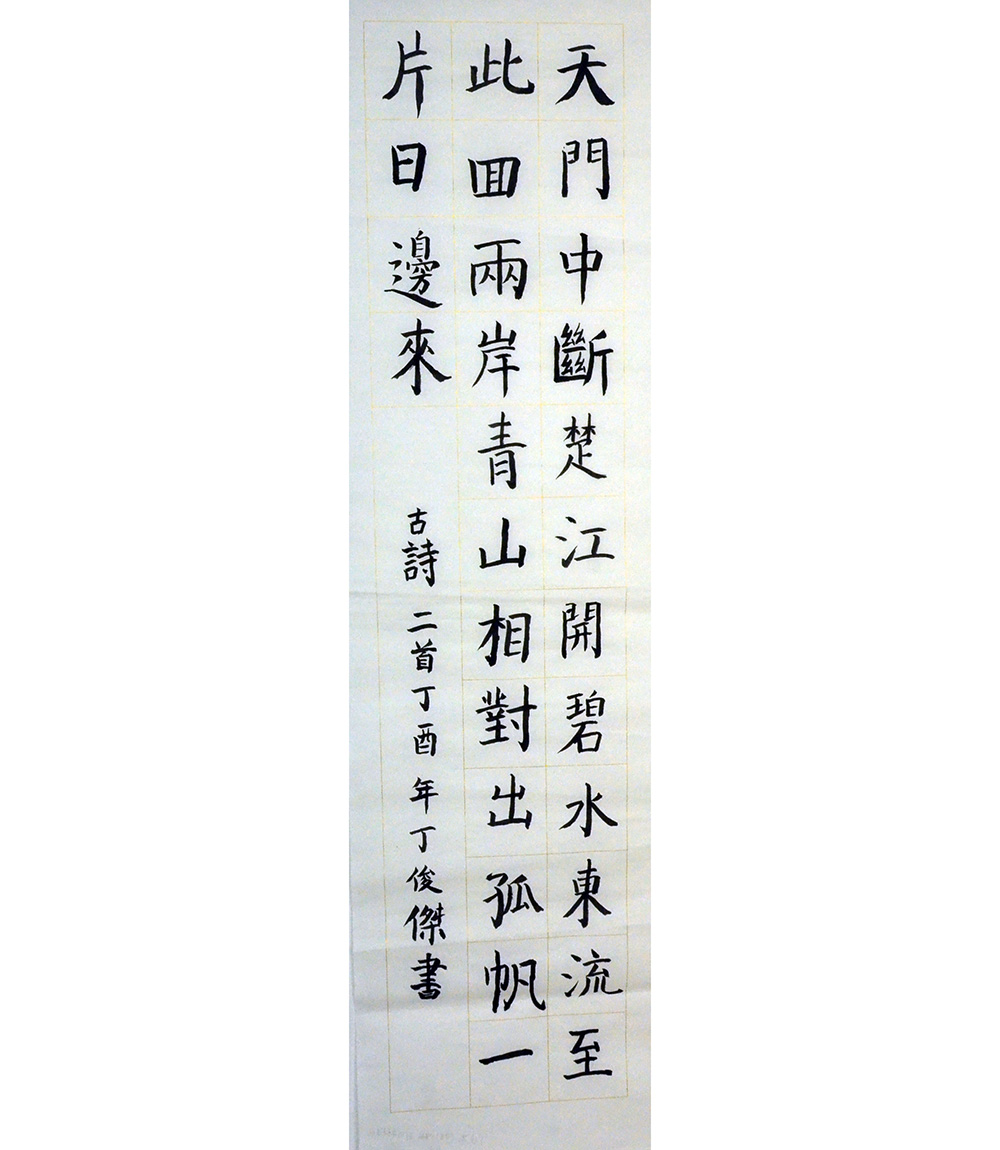 天門中斷楚江開碧水東流至
此囬兩岸青山相對出孤帆一
片日邊來
古詩二首丁酉年丁俊傑書